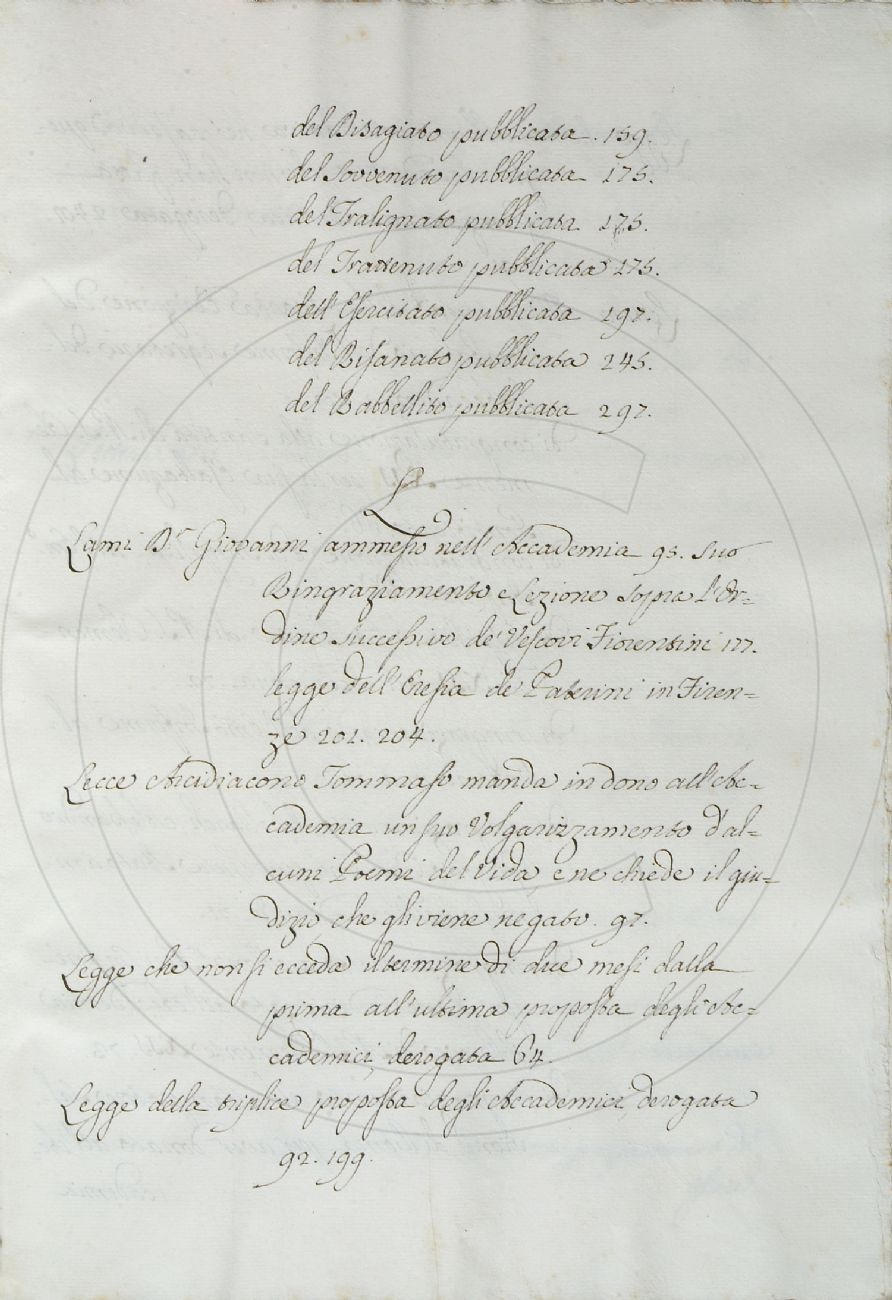 del Disagiato pubblicata. 159.
del Sovvenuto pubblicata 175.
del Tralignato pubblicata 175.
del Trattenuto pubblicata 175.
dell' Esercitato pubblicata 197.
del Risanato pubblicata 245.
del Rabbellito pubblicata 297.
L.
Lami D.r Giovanni ammesso nell' Accademia 95. Suo
Ringraziamento e Lezione sopra l'Or-
dine successivo de' Vescovi Fiorentini 177.
legge dell' Eresia de Paterini in Firen-
ze 201. 204.
Lecce Arcidiacono Tommaso manda in dono all' Ac-
cademia un suo Volgarizzamento d'al-
cuni Poemi del Vida, e ne chiede il giu-
dizio che gli viene negato. 97.
Legge che non si ecceda il termine di due mesi dalla
prima all' ultima proposta degli Ac-
cademici, derogata 64.
Legge della triplice proposta degli Accademici, derogata
92. 199.